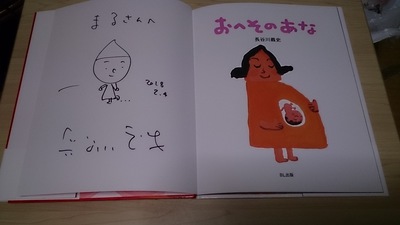 まるさんへ
2018
2.4
おへそのあな
長谷川義史
BL出版